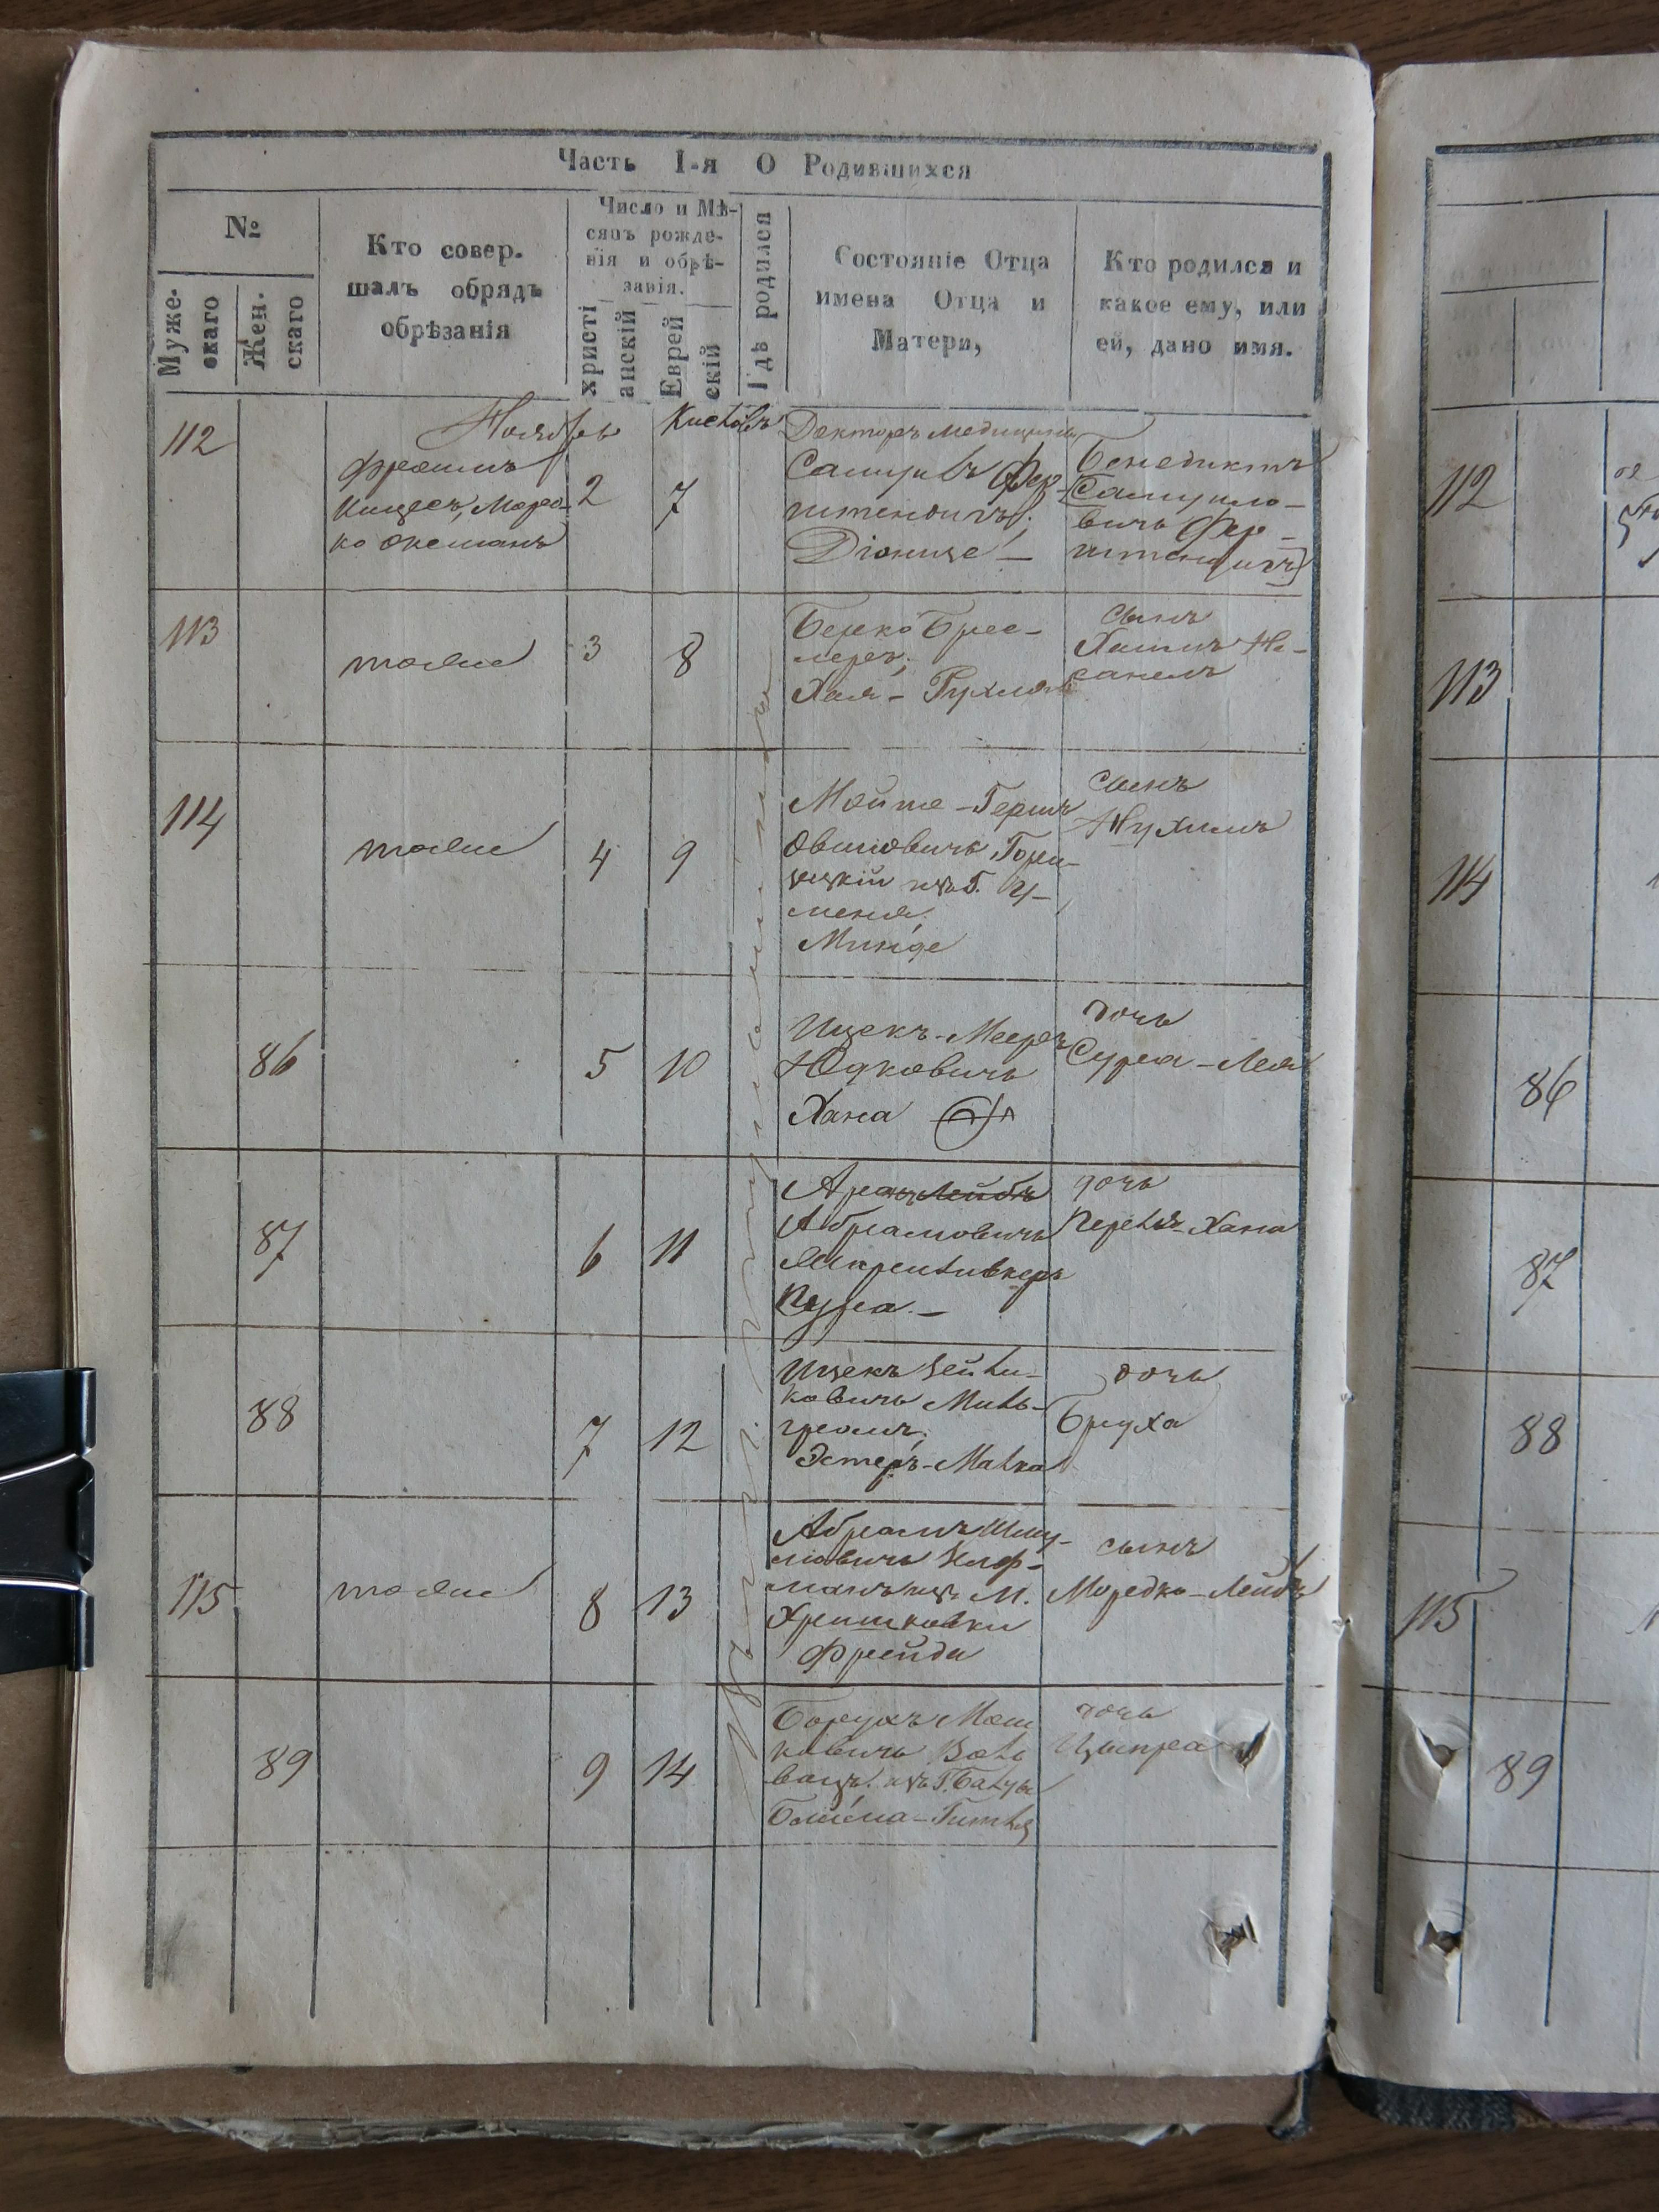 Часть I-я О Родившихся
№
Муже-
скаго
Жен.
скаго
Кто совер.
шалъ обрядъ
обрѣзанія
Число и Мѣ-
сяцъ рожде-
нія и обрѣ-
занія.
христі
анскій
Еврей
скій
Гдѣ родился
Состояніе Отца
имена Отца и
Матери,
Кто родился и
какое ему, или
ей, дано имя.
Ноябрь
Кислевъ
112
Фроимъ
ко Оксманъ
2
7
Докторъ медицины
Самуилъ Фер-
штендигъ;
Діонизе —
Бенедиктъ
Самуило-
вичъ Фер-
штендигъ
113
тоже
3
8
Берко Брес-
леръ;
Хая - Рухля
сынъ
Хаимъ Не-
санель
114
тоже
4
9
Мойше - Гершъ
Овшіовичъ
изъ Г. У-
меня.
Минде
сынъ
Нухимъ
86
5
10
Ицекъ - Мееръ
Юдковичъ
Хана
дочь
Сура - Лея
87
6
11
Абрамовичъ
Дочь
Перель - Хана
88
7
12
Ицекъ Зейли-
ковичъ Миль-
громъ;
Эстеръ - Малка
дочь
Бруха
115
тоже
8
13
Абрамъ Шму-
ловичъ
изъ М.
Хрищковки
Фрейда
сынъ
Мордко - Лейбъ
89
9
14
Борухъ Мош
ковичъ
изъ Г. Балты
Блюма - Гитля
дочь
Ципра
112
113
114
86
87
88
115
89